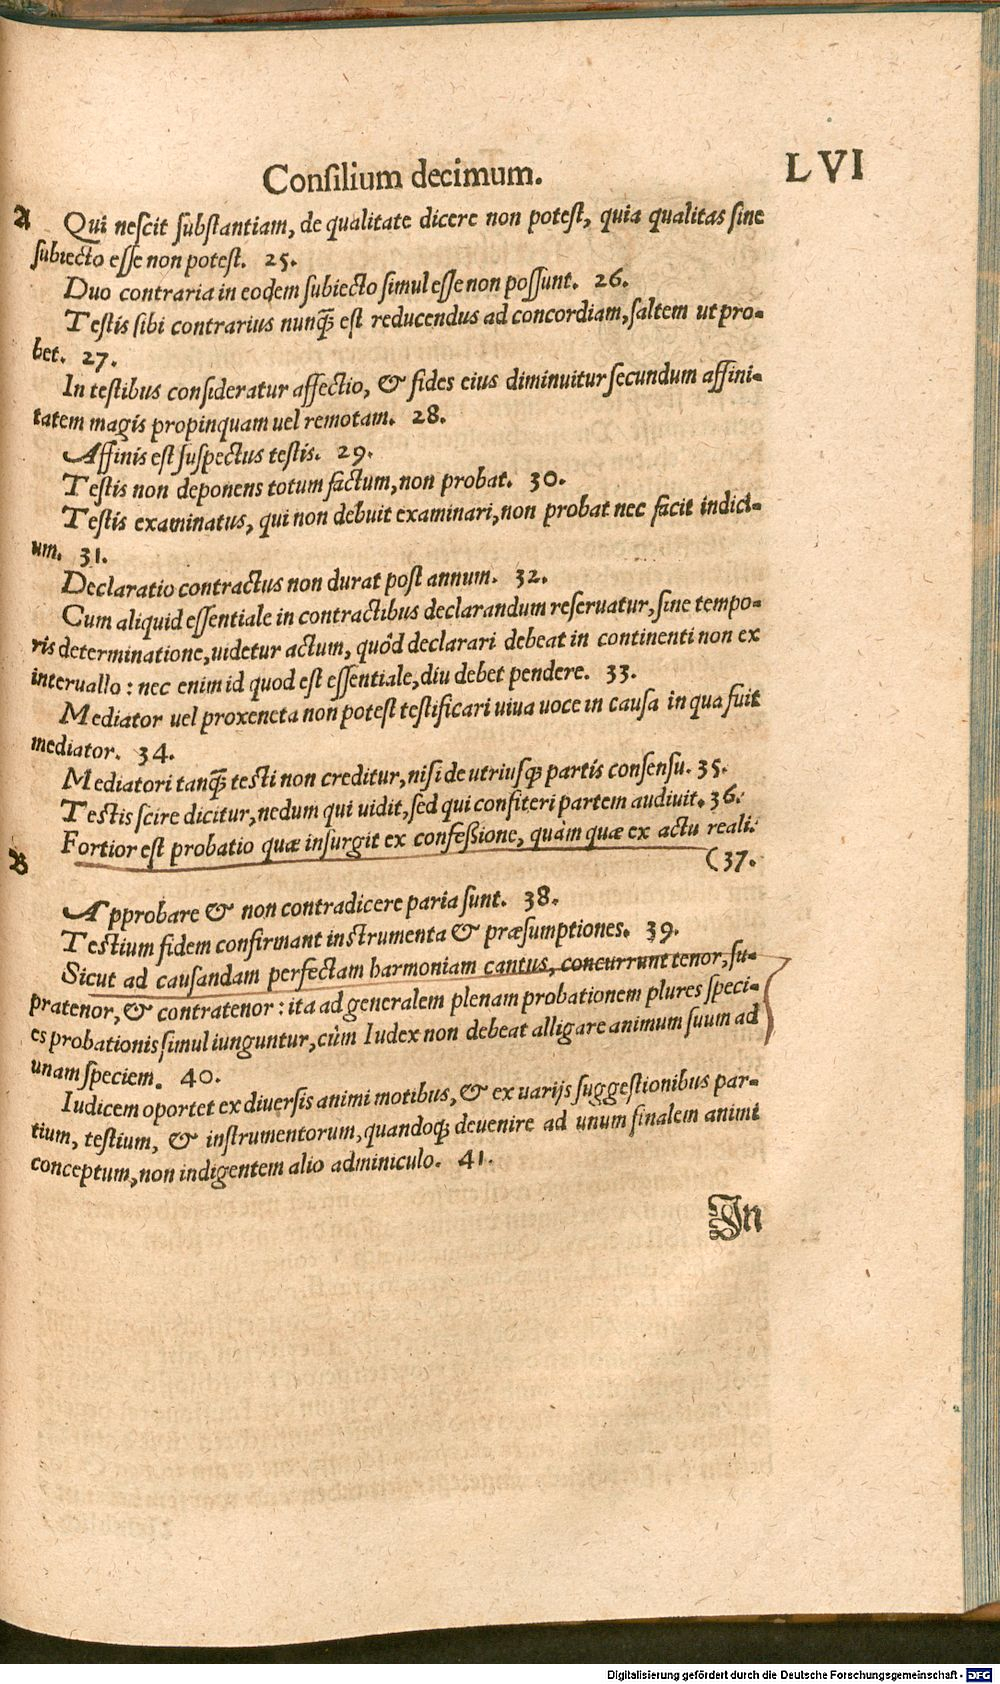 Consilium decimum. LVI
A Qui nescit substantiam, de qualitate dicere non potest, quia qualitas sine
subiecto esse non potest. 25.
Duo contraria in eodem subiecto simul esse non possunt. 26.
Testis sibi contrarius nunq̃ est reducendus ad concordiam, saltem ut pro-
bet. 27.
In testibus consideratur affectio, & fides eius diminuitur secundum affini-
tatem magis propinquam uel remotam. 28.
Affinis est suspectus testis. 29.
Testis non deponens totum factum, non probat. 30.
Testis examinatus, qui non debuit examinari, non probat nec facit indici-
um. 31.
Declaratio contractus non durat post annum. 32.
Cum aliquid essentiale in contractibus declarandum reseruatur, sine tempo-
ris determinatione, uidetur actum, quòd declarari debeat in continenti non ex
interuallo: nec enim id quod est essentiale, diu debet pendere. 33.
Mediator uel proxeneta non potest testificari uiua uoce in causa in qua fuit
mediator. 34.
Mediatori tanq̃ testi non creditur, nisi de utriusq; partis consensu. 35.
Testis scire dicitur, nedum qui uidit, sed qui confiteri partem audiuit. 36.
Fortior est probatio quæ insurgit ex confeßione, quàm quæ ex actu reali.
B (37.
Approbare & non contradicere paria sunt. 38.
Testium fidem confirmant instrumenta & præsumptiones. 39.
Sicut ad causandam perfectam harmoniam cantus, concurrunt tenor, su-
pratenor, & contratenor: ita ad generalem plenam probationem plures speci-
es probationis simul iunguntur, cùm Iudex non debeat alligare animum suum ad
unam speciem. 40.
Iudicem oportet ex diuersis animi motibus, & ex uarijs suggestionibus par-
tium, testium, & instrumentorum, quandoq; deuenire ad unum finalem animi
conceptum, non indigentem alio adminiculo. 41.
In
Digitalisierung gefördert durch die Deutsche Forschungsgemeinschaft - DFG